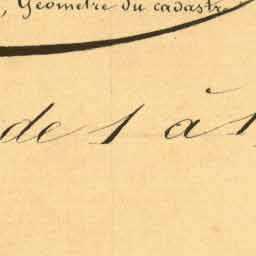 , Géomètre du cadastre
de 1 à 1